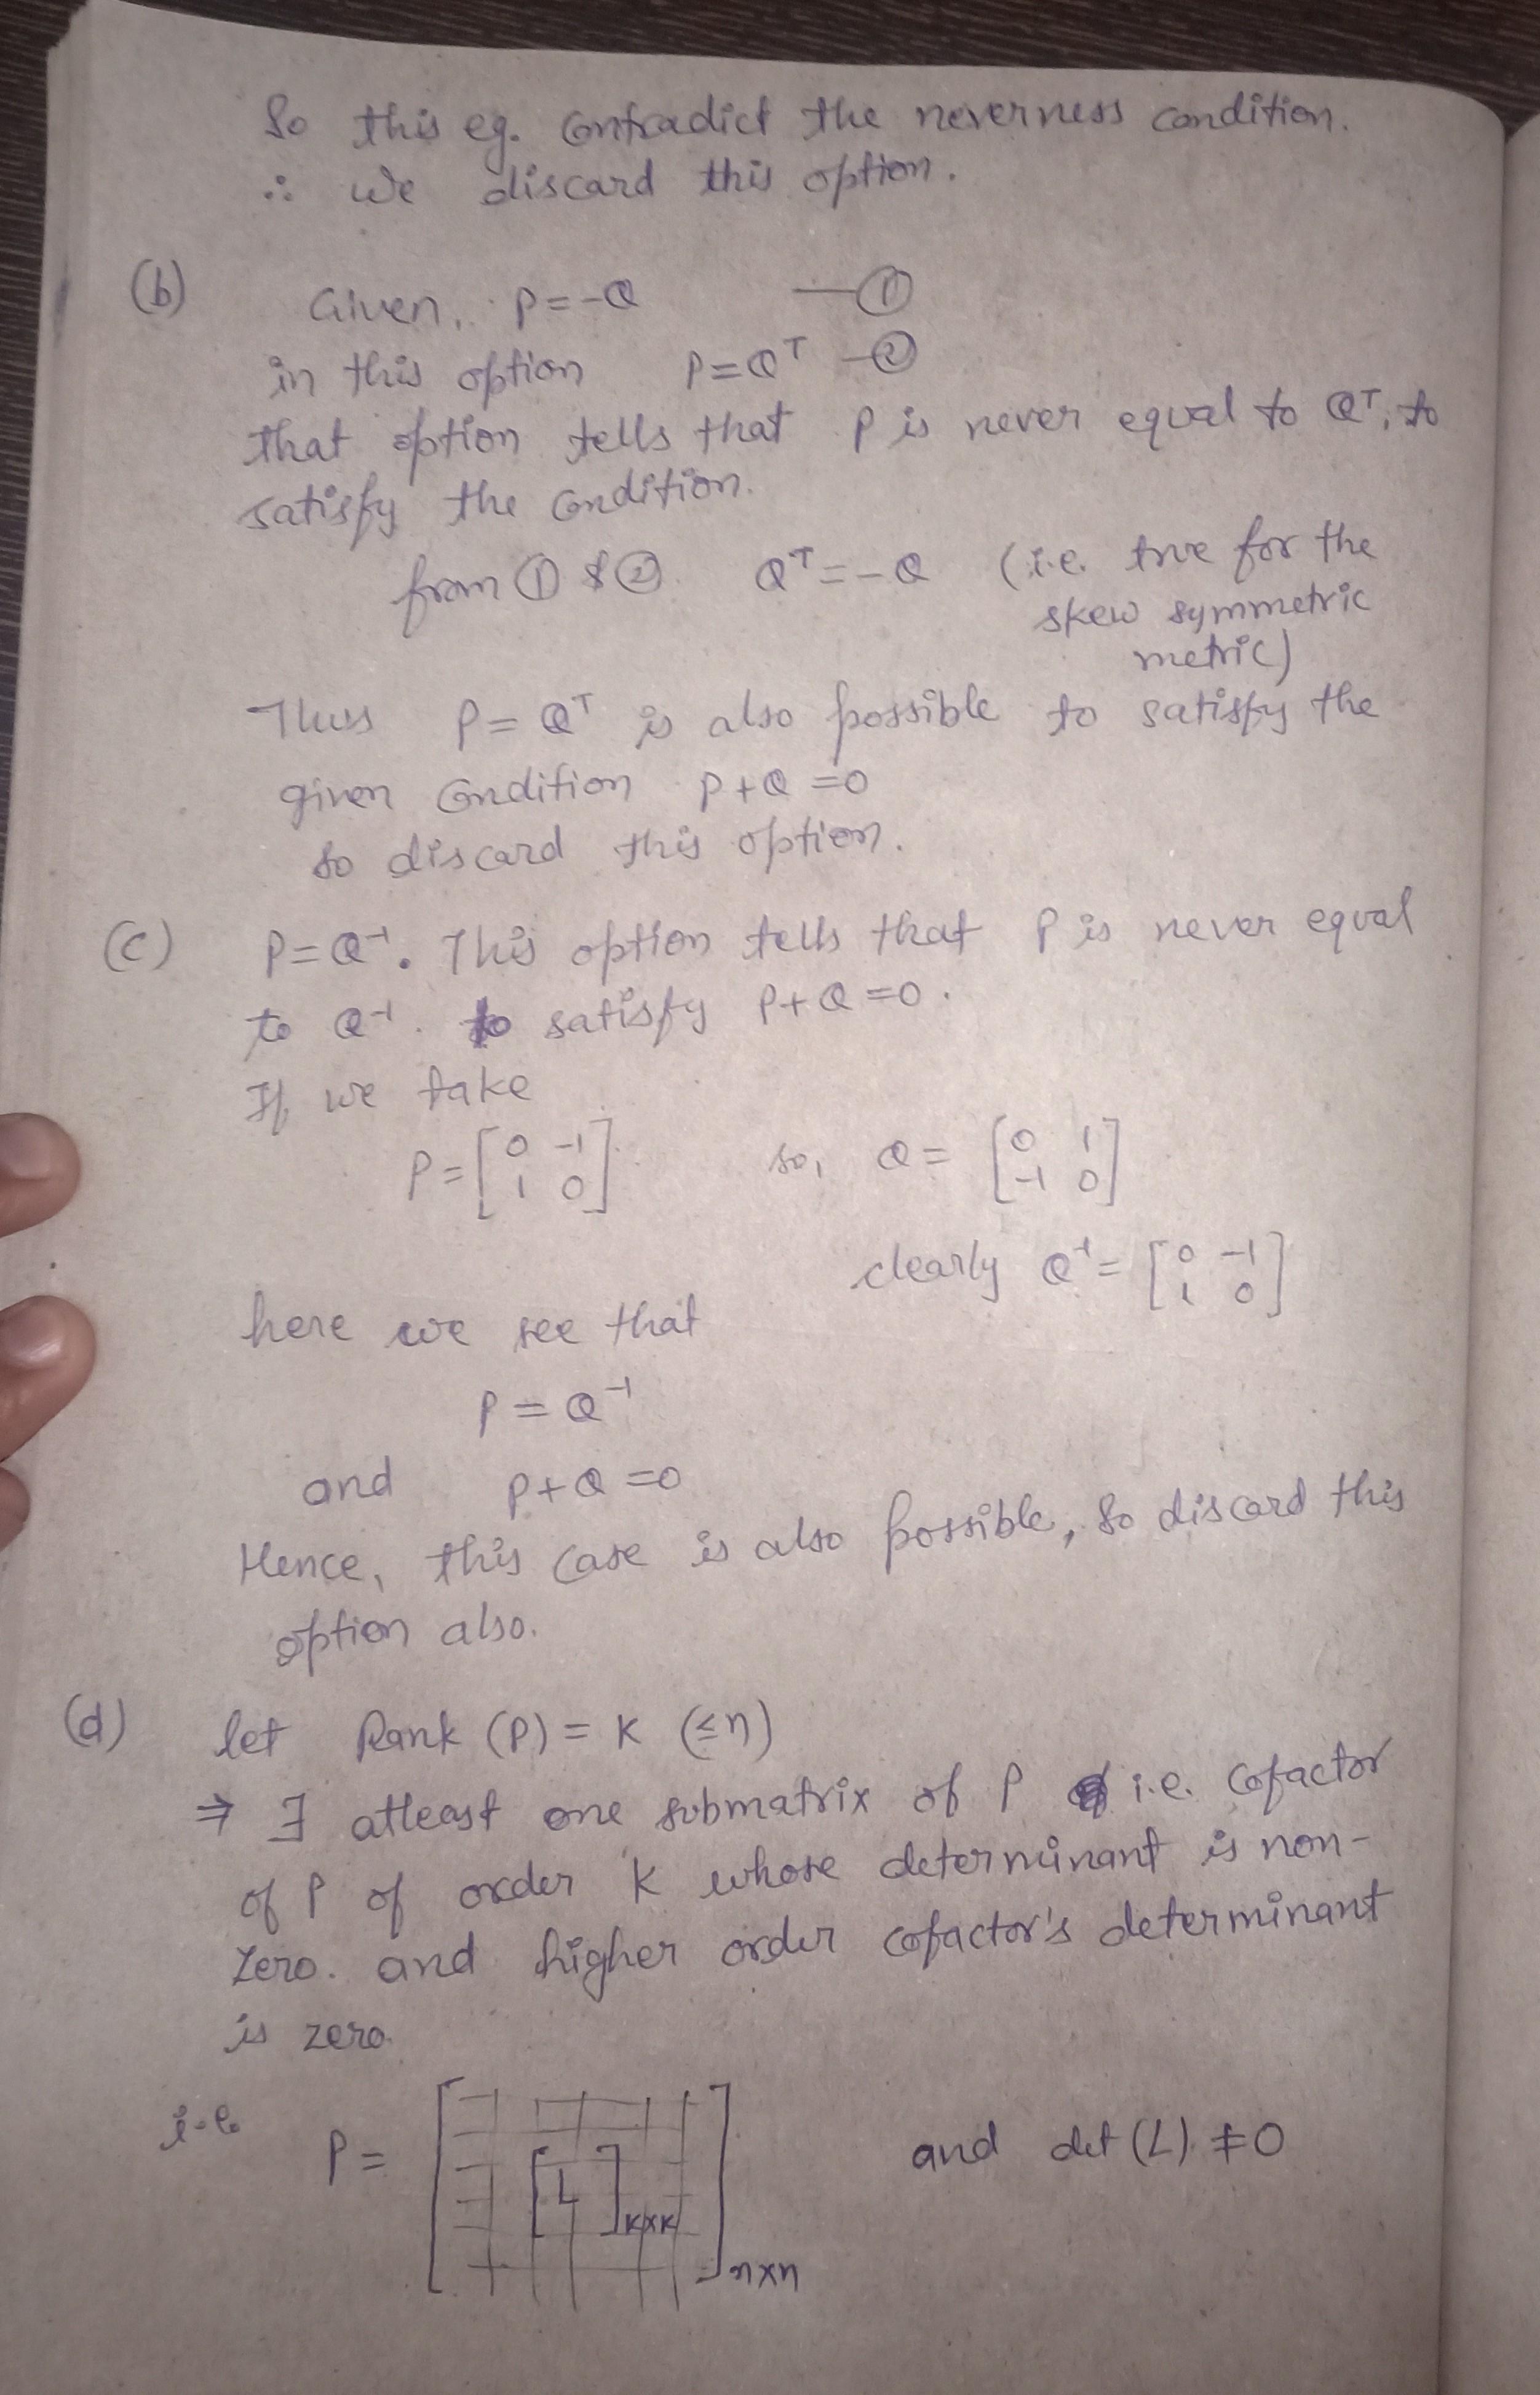 So this eg. contradict the neverness condition.
∴ we discard this option.
(b) Given, P=-Q —①
in this option P=Qᵀ —②
that option tells that P is never equal to Qᵀ, to
satisfy the condition.
from ① & ② Qᵀ=-Q (i.e. true for the
skew symmetric
metric)
Thus P=Qᵀ is also possible to satisfy the
given condition P+Q=0
so discard this option.
(c) P=Q⁻¹. This option tells that P is never equal
to Q⁻¹. to satisfy P+Q=0.
If we take
P=[0 -1; 1 0] so, Q=[0 1; -1 0]
clearly Q⁻¹=[0 -1; 1 0]
here we see that
P=Q⁻¹
and P+Q=0
Hence, this case is also possible, so discard this
option also.
(d) let Rank (P)=K (≤n)
⇒ ∃ atleast one submatrix of P i.e. cofactor
of P of order K whose determinant is non-
zero. and higher order cofactor's determinant
is zero.
i.e. P=[[L]K×K]n×n and det(L)≠0